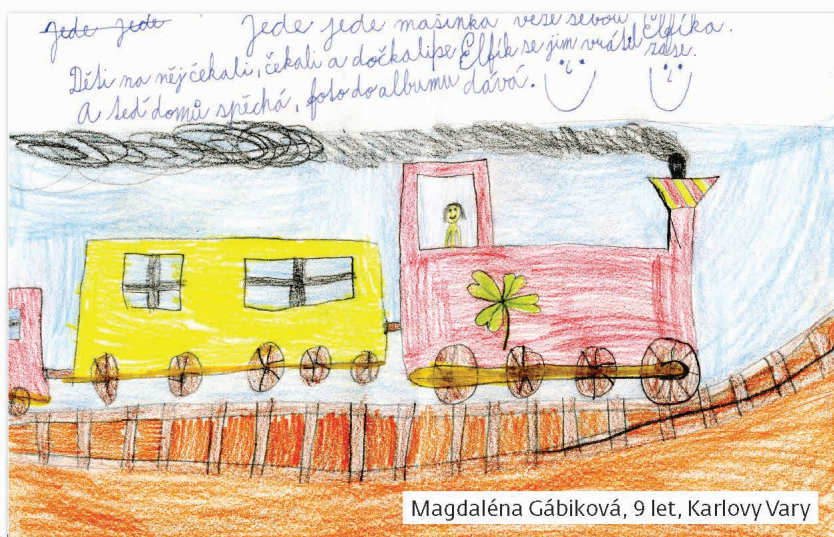 Jede jede Jede jede mašinka veze sebou Elfíka.
Děti na něj čekali, čekali a dočkali se Elfík se jim vrátil zase.
A teď domů spěchá, foto do albumu dává.
Magdaléna Gábiková, 9 let, Karlovy Vary